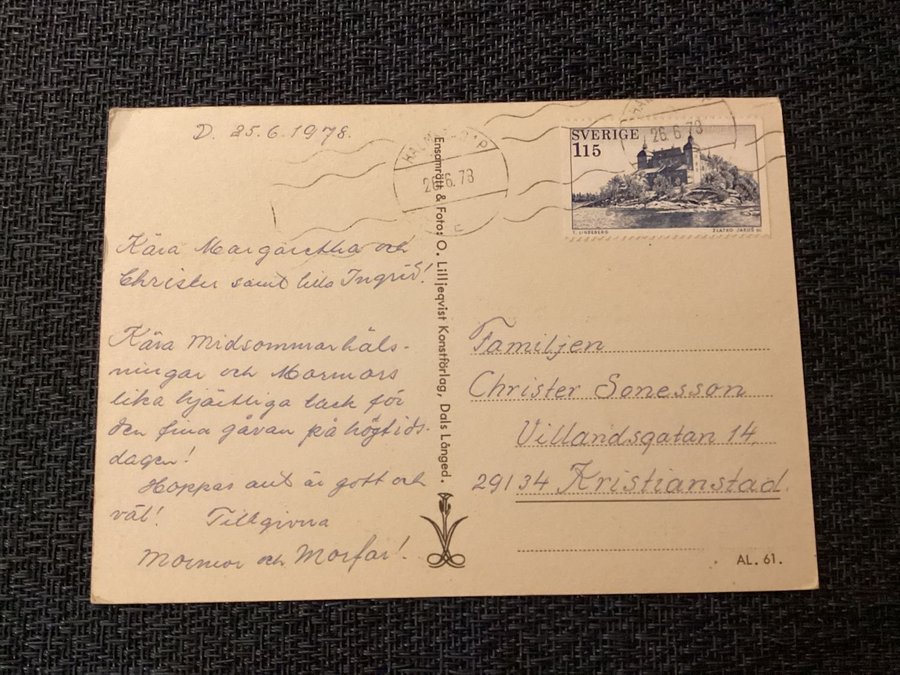 D. 25.6.1978.
Kära Margaretha och
Christer samt lilla Ingrid!
Kära Midsommarhäls-
ningar och Mormors
lika hjärtliga tack för
den fina gåvan på högtids-
dagen!
Hoppas allt är gott och
väl! Tillgivna
Mormor och Morfar!
Ensamrätt & Foto: O. Lilljeqvist Konstförlag, Dals Långed.
26.6.78
26.6.78
SVERIGE
115
T. LINDEBERG ZLATKO JAKUŠ sc.
Familjen
Christer Sonesson
Villandsgatan 14.
29134 Kristianstad.
AL. 61.